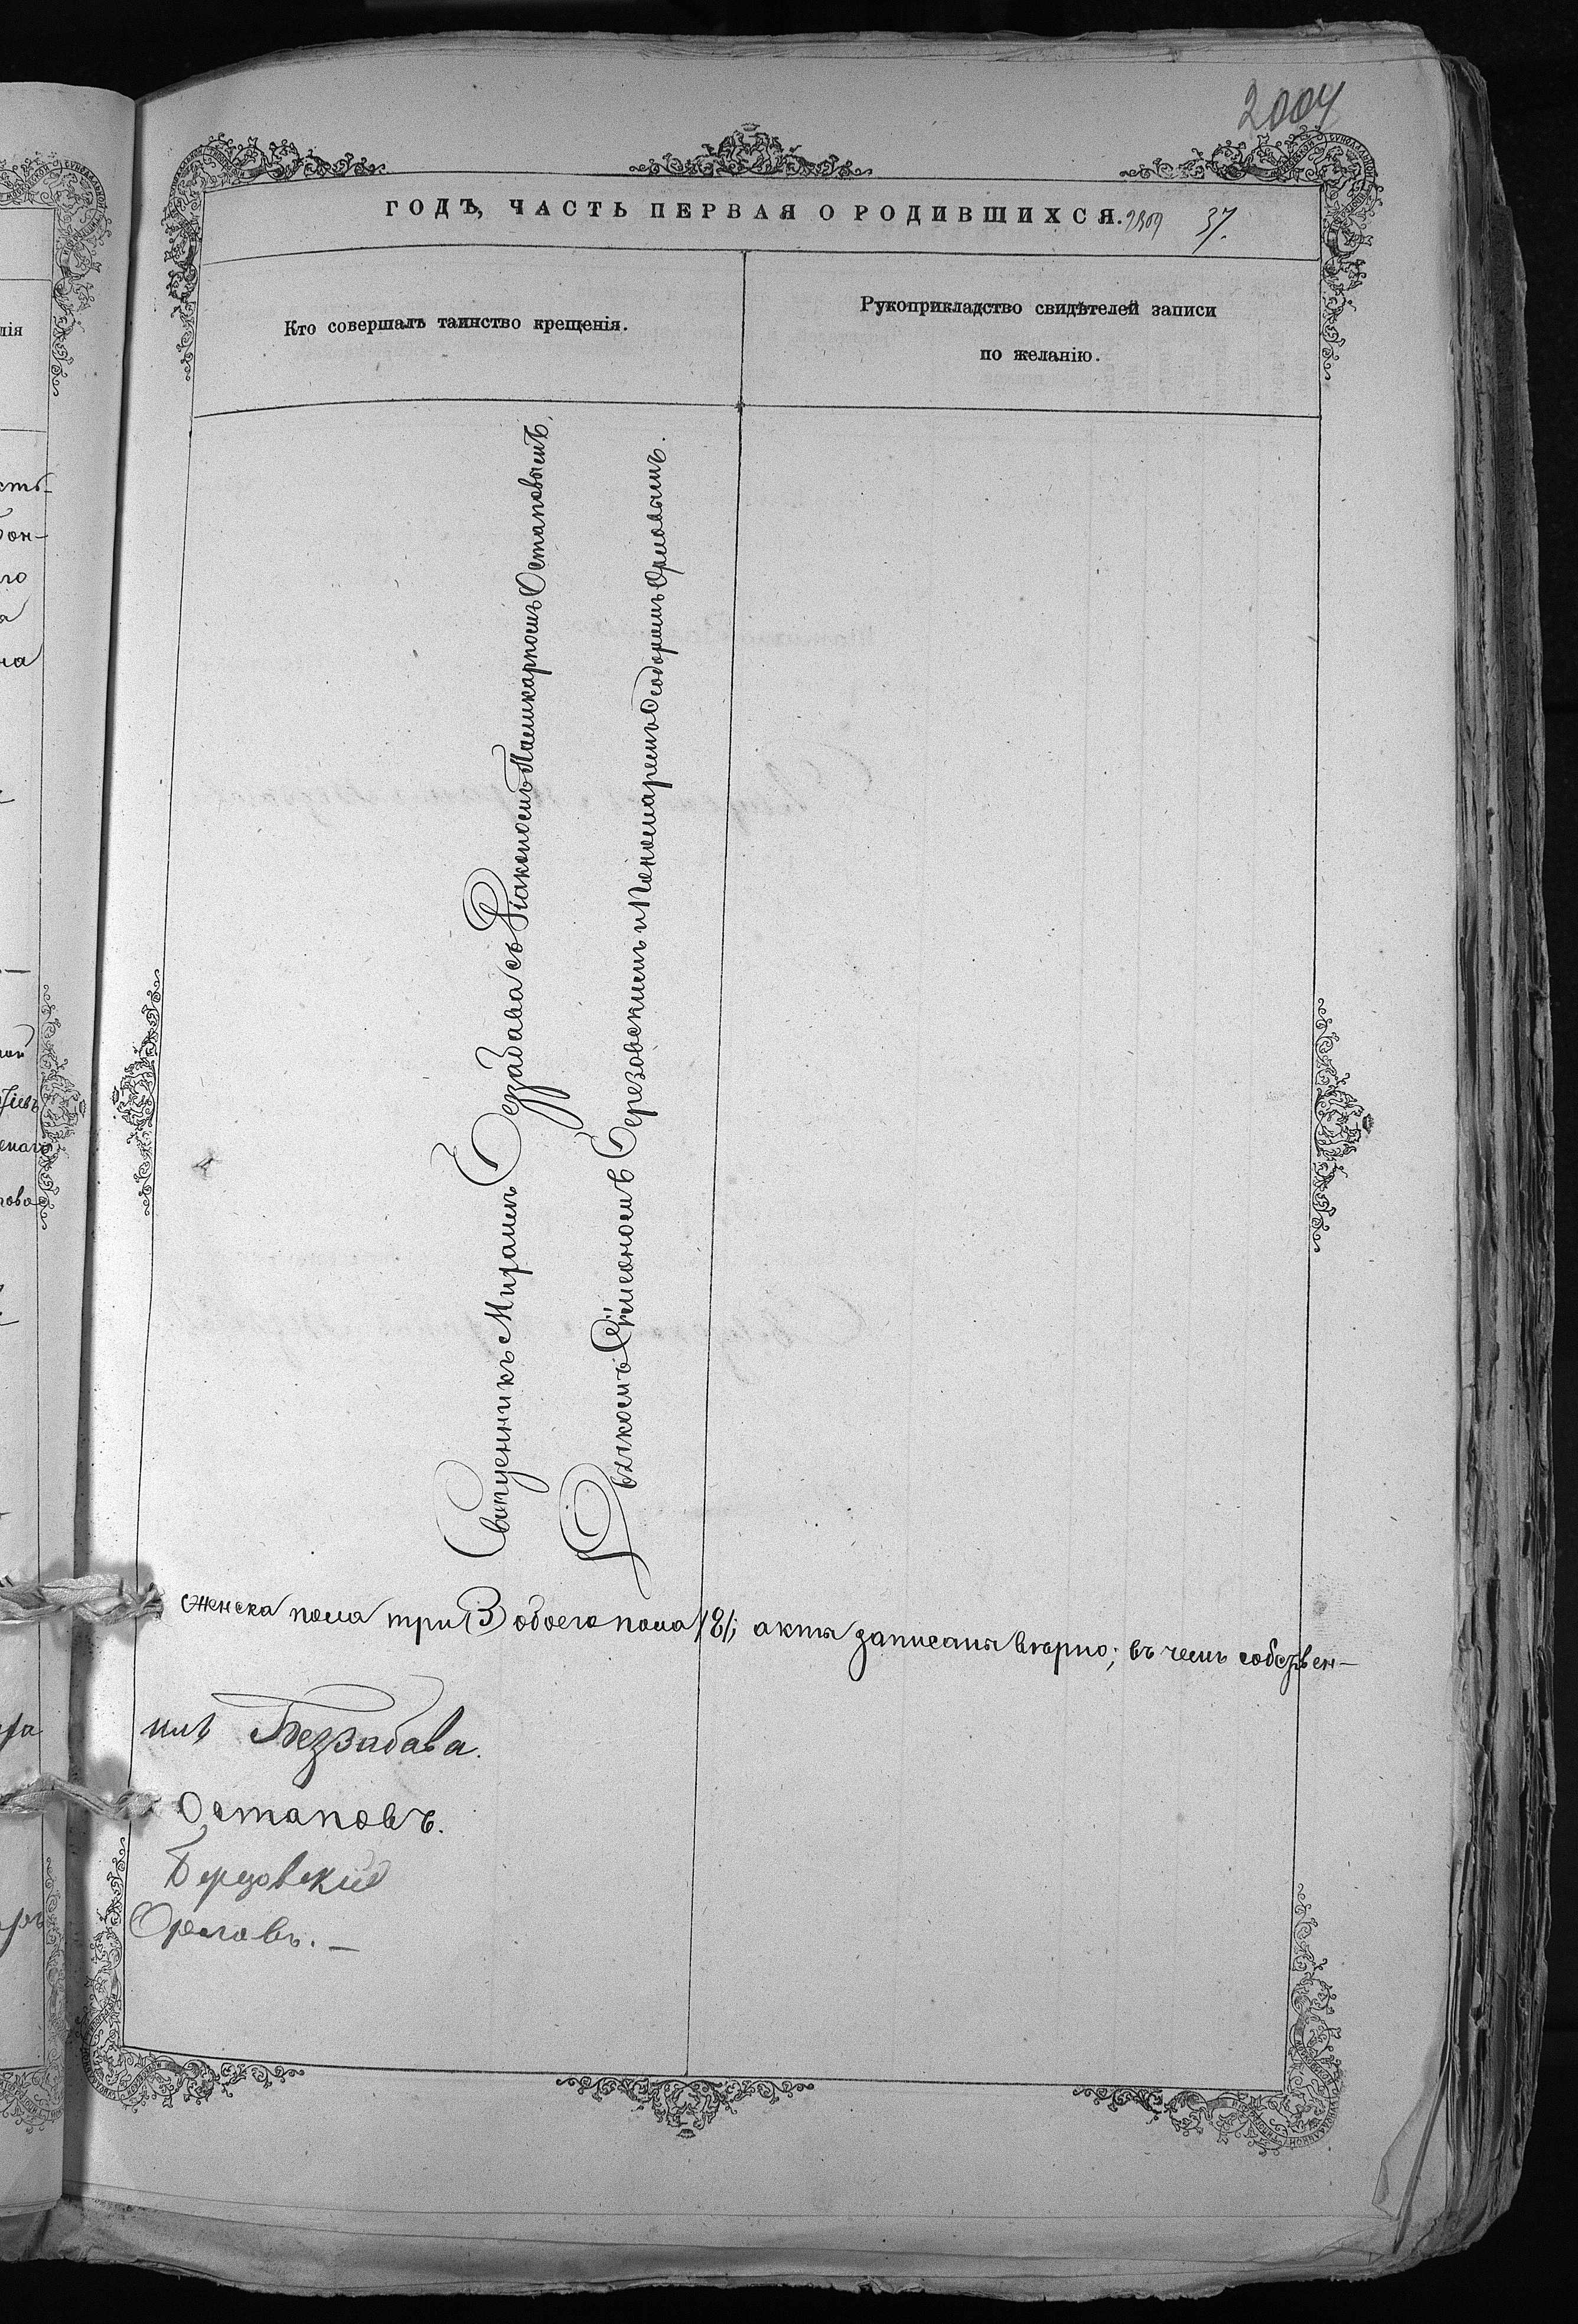 2004
ГОДЪ, ЧАСТЬ ПЕРВАЯ О РОДИВШИХСЯ. 37.
Кто совершалъ таинство крещенія.
Рукоприкладство свидѣтелей записи
по желанію.
Священникъ Безабава съ Діакономъ Поликарпомъ Остаповымъ,
Дьячкомъ Симеономъ Березовскимъ и Пономаремъ Ѳеодоромъ Орловымъ.
женска пола три (3) обоего пола акты записаны вѣрно; въ чемъ собствен-
Беззабава.
Остаповъ.
Березовскій
Орловъ. —